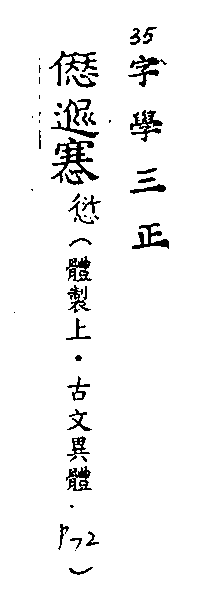 35 字學三正
㥶 愆(體製上·古文異體·P72)